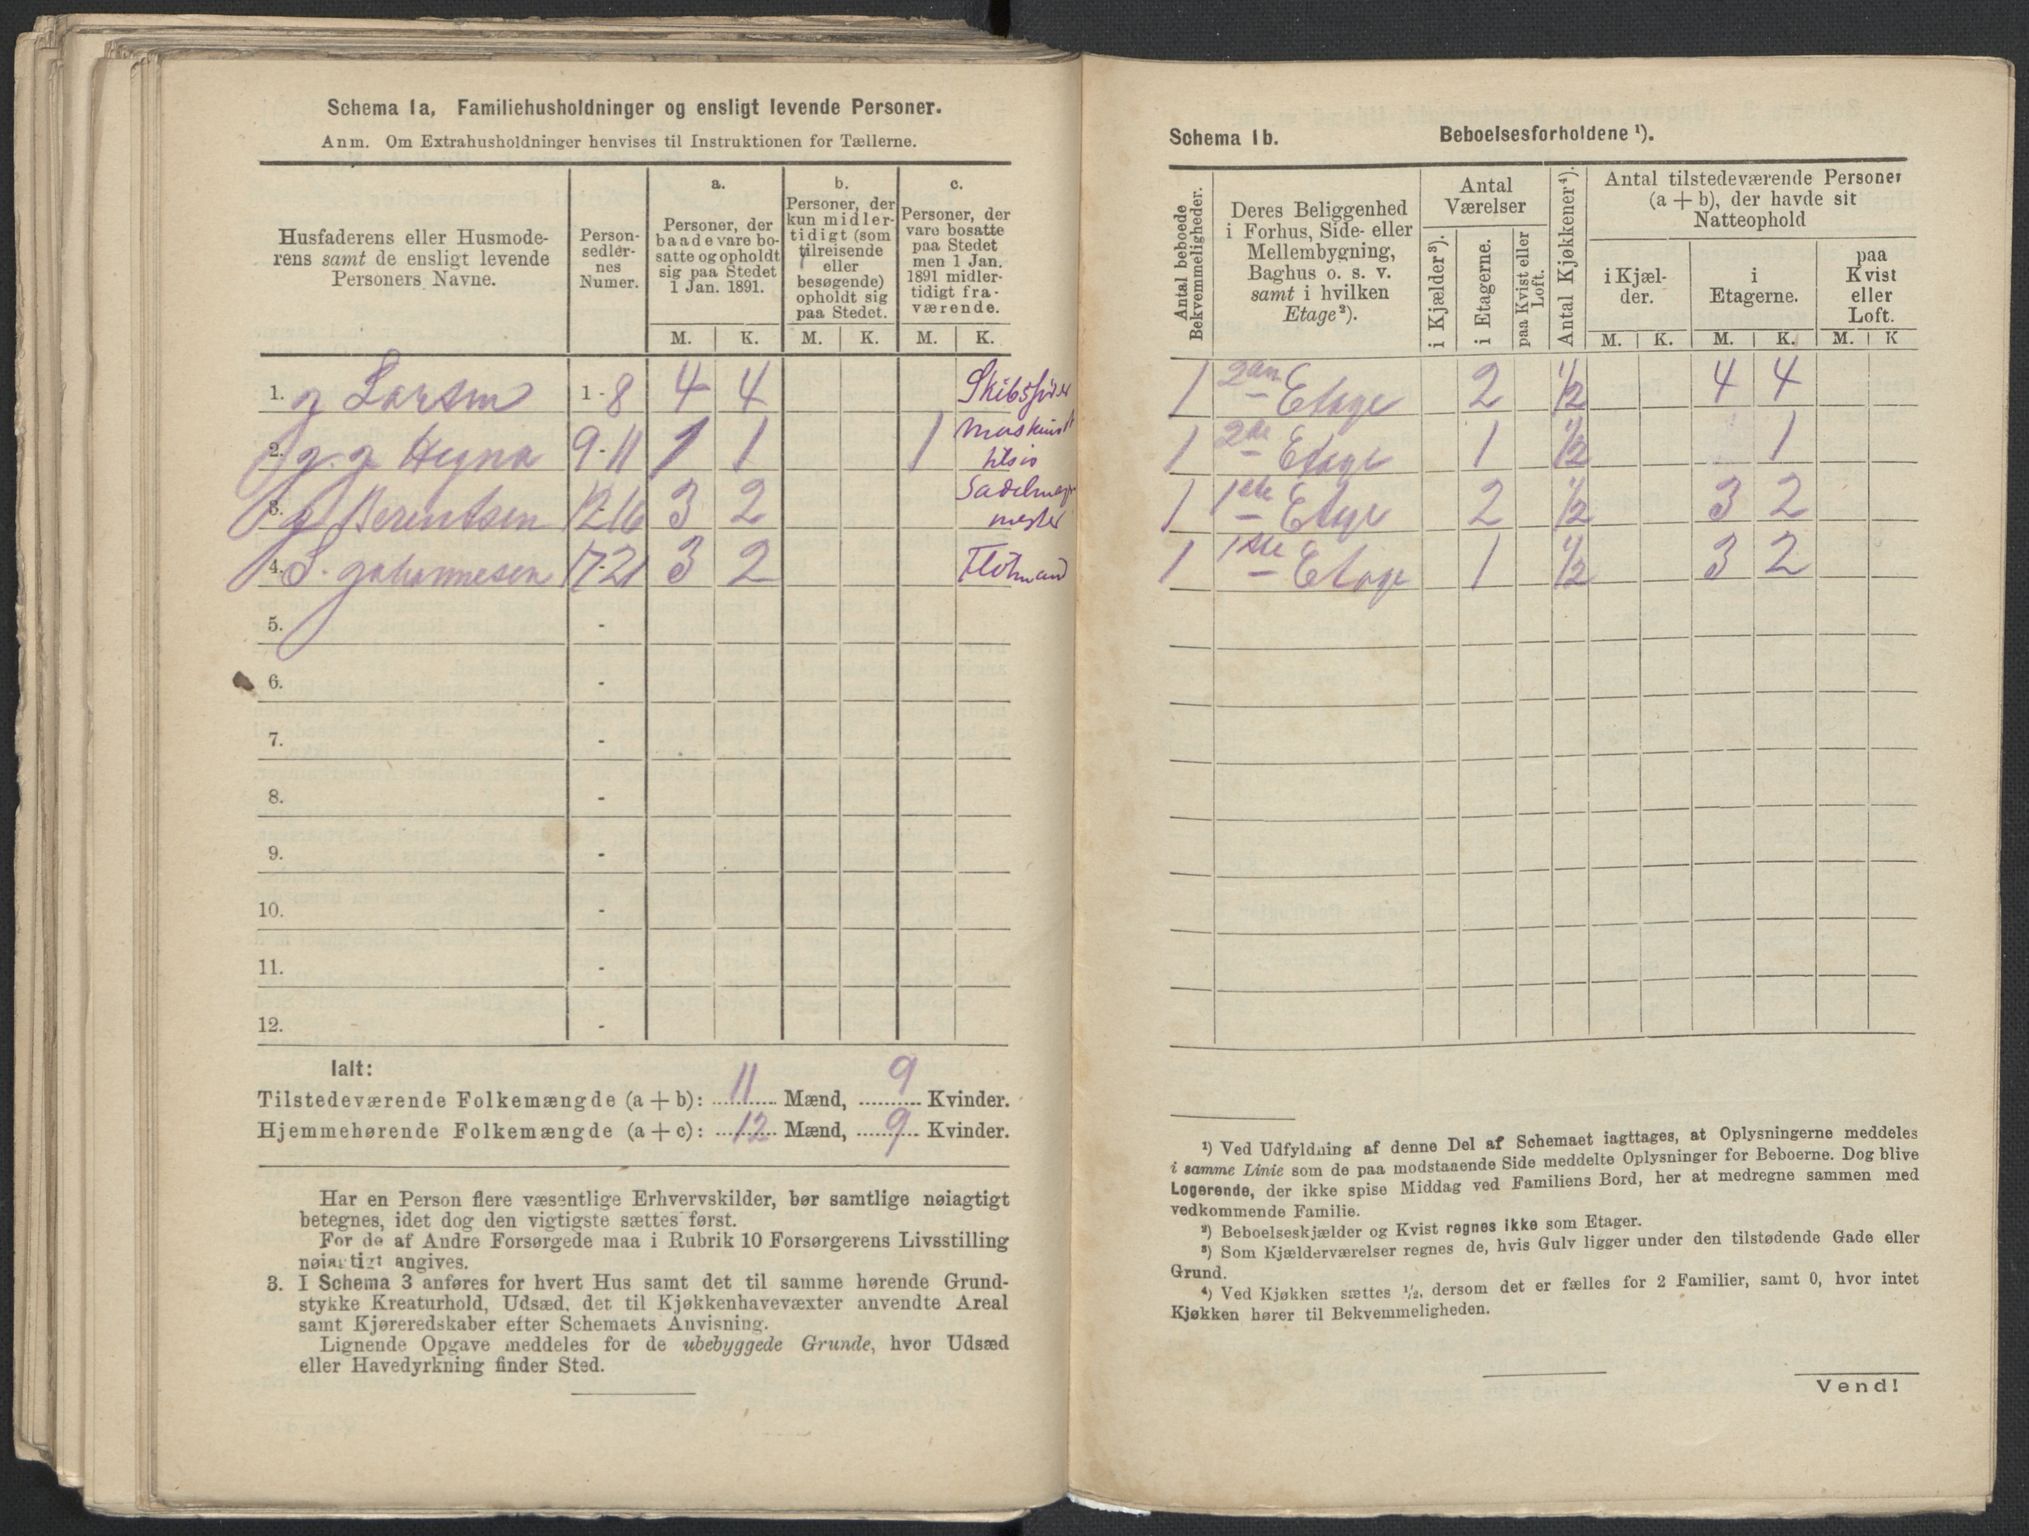 Schema 1a, Familiehusholdninger og ensligt levende Personer.
Anm. Om Extrahusholdninger henvises til Instruktionen for Tællerne.
Husfaderens eller Husmode-
rens samt de ensligt levende
Personers Navne.
Person-
sedler-
nes
Numer.
a.
Personer, der
baade vare bo-
satte og opholdt
sig paa Stedet
1 Jan. 1891.
b.
Personer, der
kun midler-
tidigt (som
tilreisende
eller
besøgende)
opholdt sig
paa Stedet.
c.
Personer, der
vare bosatte
paa Stedet
men 1 Jan.
1891 midler-
tidigt fra-
værende.
M. K. M. K. M. K.
1. g Larsen 1-8 4 4 Skibsfører
2. g. g Hegna 9-11 1 1 1 Maskinist
tilsjø
3. g Berentsen 12-16 3 2 Sadelmager
mester
4. S. Johannesen 17-21 3 2 Flotmand
5. -
6. -
7. -
8. -
9. -
10. -
11. -
12. -
Ialt:
Tilstedeværende Folkemængde (a + b): 11 Mænd, 9 Kvinder.
Hjemmehørende Folkemængde (a + c): 12 Mænd, 9 Kvinder.
Har en Person flere væsentlige Erhvervskilder, bør samtlige nøiagtigt
betegnes, idet dog den vigtigste sættes først.
For de af Andre Forsørgede maa i Rubrik 10 Forsørgerens Livsstilling
nøiagtigt angives.
3. I Schema 3 anføres for hvert Hus samt det til samme hørende Grund-
stykke Kreaturhold, Udsæd, det til Kjøkkenhavevæxter anvendte Areal
samt Kjøreredskaber efter Schemaets Anvisning.
Lignende Opgave meddeles for de ubebyggede Grunde, hvor Udsæd
eller Havedyrkning finder Sted.
Schema 1b. Beboelsesforholdene ¹).
Antal beboede
Bekvemmeligheder.
Deres Beliggenhed
i Forhus, Side- eller
Mellembygning,
Baghus o. s. v.
samt i hvilken
Etage²).
Antal
Værelser
i Kjælder³).
i Etagerne.
paa Kvist eller
Loft.
Antal Kjøkkener⁴).
Antal tilstedeværende Personer
(a + b), der havde sit
Natteophold
i Kjæl-
der.
i
Etagerne.
paa
Kvist
eller
Loft.
M. K. M. K. M. K
1 2den Etage 2 1/2 4 4
1 2de Etage 1 1/2 1
1 1ste Etage 2 1/2 3 2
1 1ste Etage 1 1/2 3 2
¹) Ved Udfyldning af denne Del af Schemaet iagttages, at Oplysningerne meddeles
i samme Linie som de paa modstaaende Side meddelte Oplysninger for Beboerne. Dog blive
Logerende, der ikke spise Middag ved Familiens Bord, her at medregne sammen med
vedkommende Familie.
²) Beboelseskjælder og Kvist regnes ikke som Etager.
³) Som Kjælderværelser regnes de, hvis Gulv ligger under den tilstødende Gade eller
Grund.
⁴) Ved Kjøkken sættes ½, dersom det er fælles for 2 Familier, samt 0, hvor intet
Kjøkken hører til Bekvemmeligheden.
Vend!